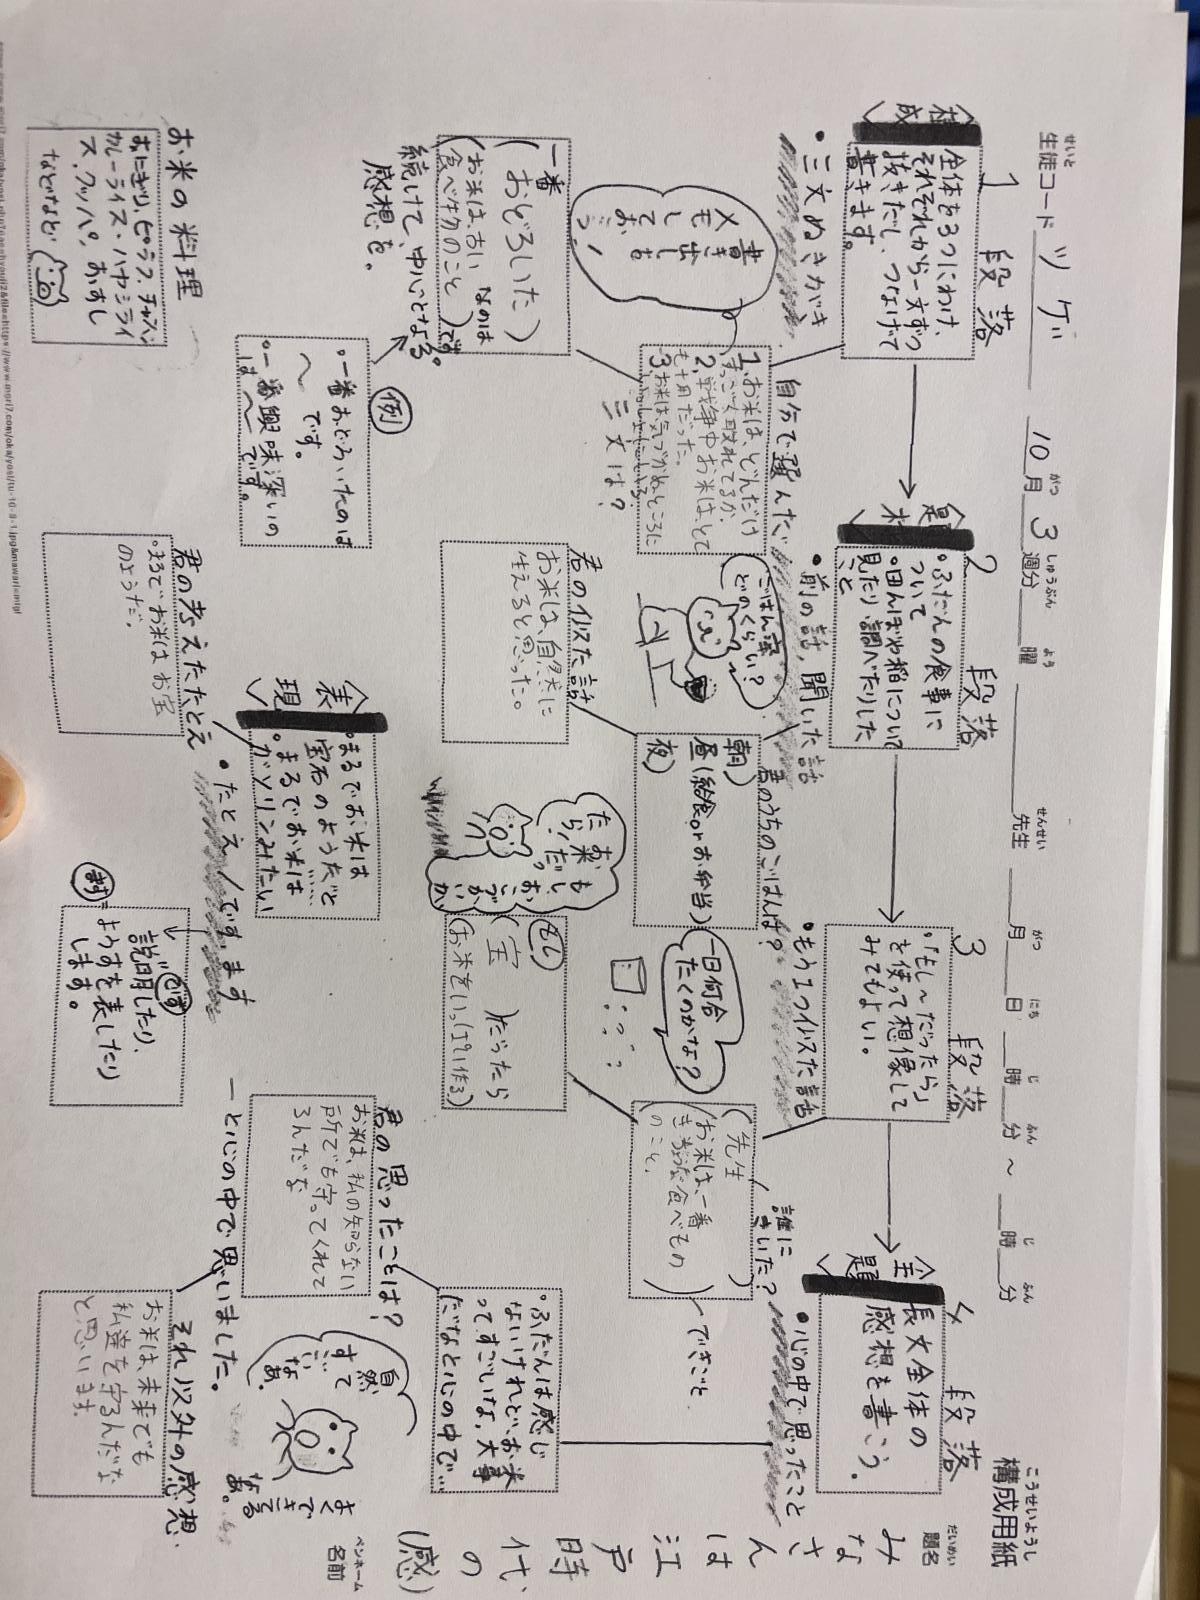 構成用紙
こうせいようし
題名
だいめい
みなさんは江戸時代、の(感)
ペンネーム
名前
生徒コード ツゲ 10月3週分 曜 先生 月 日 時 分 ～ 時 分
せいと がつ しゅうぶん よう せんせい がつ にち じ ふん じ ふん
1段落
〈構成〉
全体を3つにわけ、
それぞれから一文ずつ
抜きだし、つなげて
書きます。
•三文ぬきがき
自分で選んだ
三文は?
1.お米は、どんだけ
2.戦争中お米は、とて
も十用だった。
3.お米は気づかぬところに
書き出し
メモして
おこう!
一番
(おどろいた)
なのは
(お米は、古い
食べ物のこと)です
続けて、中心となる
感想を。
例
•一番おどろいたのは
〜です。
•一番興味深いの
は〜です。
お米の料理
おにぎり、ピラフ、チャーハン
カレーライス・ハヤシライ
ス、クッパ、おすし
などなど
2段落
〈題材〉
•ふだんの食事に
ついて
•田んぼや稲について
見たり調べたりした
こと
•前の話,聞いた話
君のうちのごはんは?
朝)
昼(給食orお弁当)
夜)
ごはん茶
どのくらい?
君の似た話
お米は、自然に
生えると思った。
〈表現〉
•まるでお米は
宝石のようだと
•まるでお米は
ガソリンみたい
•たとえ/です、ます
君の考えたたとえ
•まるでお米はお宝
のようだ。
3段落
•「もし〜だったら」
を使って想像して
みてもよい。
•もう1つ似た話
一日何合
たくのかな?
誰に
きいた?
(先生)
(お米は、一番
のこと。)
〜できごと
もし
(宝)だったら
(お米をいっぱい作る)
もし
お米だっ
たら!
です
説明したり、
ようすを表したり
します。
4段落
〈主題〉
長文全体の
感想を書こう。
•心の中で思ったこと
•ふだんは感じ
ないけれど、お米
ってすごいな,大事
だなと心の中で…
君の思ったことは?
お米は、私の知らない
所でも守ってくれて
るんだな
—と心の中で思いました。
自然
すて
ごい
なあ。
よくで
きてる
なあ。
それ以外の感想
お米は、未来でも
私達を守るんだな
と思います。